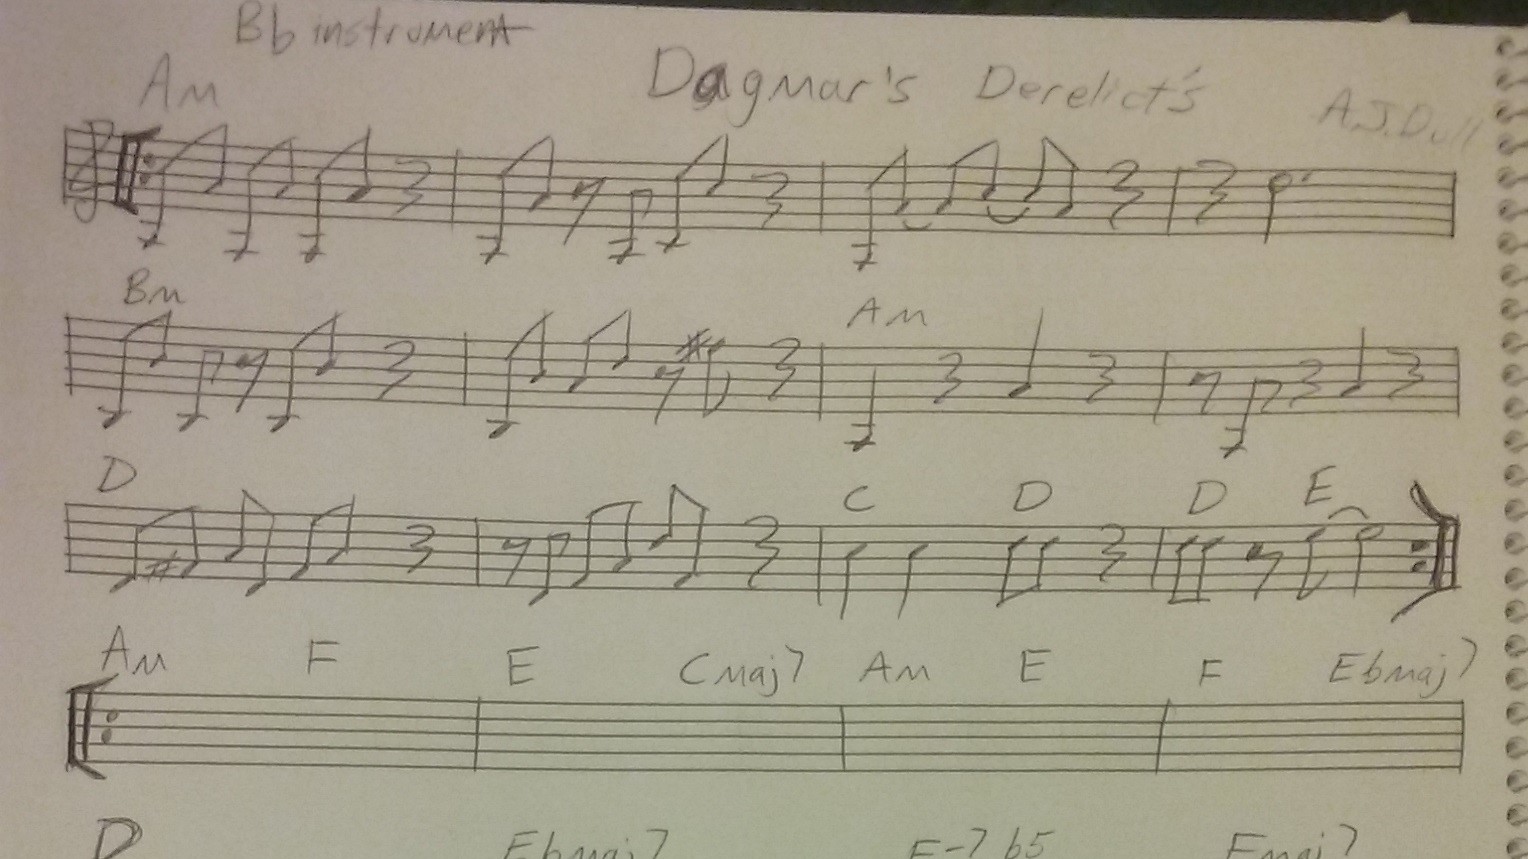 Bb instrument
Dagmar's Derelict's
Am
A.J.Dull
Bm Am
D C D D E
Am F E Cmaj7 Am E F Ebmaj7
D Ebmaj7 E-7b5 Fmaj7